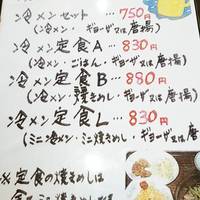 冷メンセット…750円
(冷メン・ギョーザ又は唐揚)
冷メン定食A…830円
(冷メン・ごはん・ギョーザ又は唐揚)
冷メン定食B…880円
(冷メン・焼きめし・ギョーザ又は唐揚)
冷メン定食L…830円
(ミニ冷メン・ミニ焼きめし・ギョーザ又は唐
※定食の焼きめしは